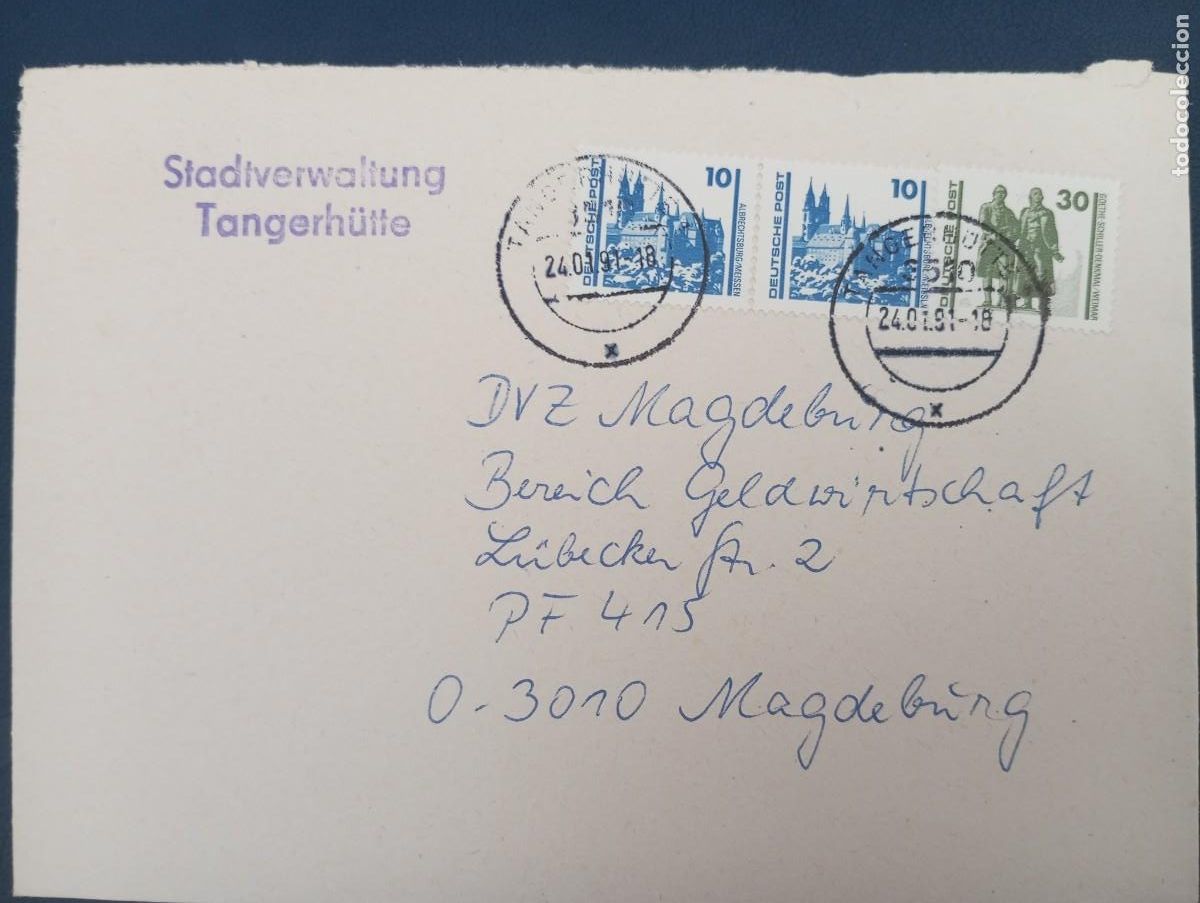 Stadtverwaltung
Tangerhütte
DEUTSCHE POST
10
ALBRECHTSBURG/MEISSEN
DEUTSCHE POST
10
DEUTSCHE POST
30
GOETHE-SCHILLER-DENKMAL/WEIMAR
24.01.91-18
x
24.01.91-18
x
DVZ Magdeburg
Bereich Geldwirtschaft
Lübecker Str. 2
PF 415
O-3010 Magdeburg
todocoleccion